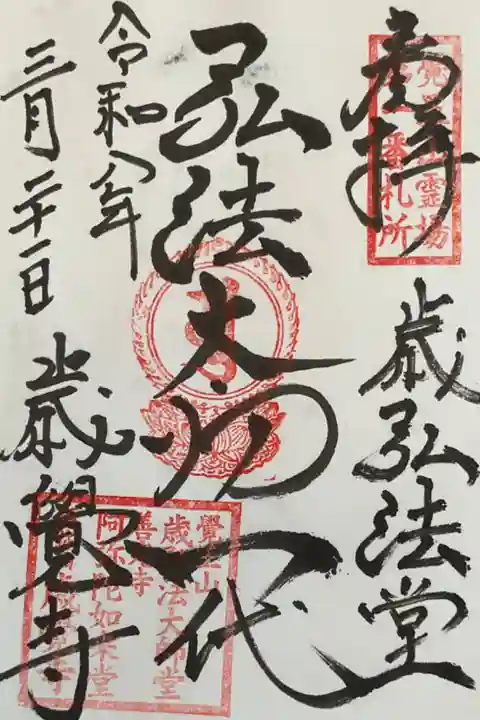 奉拝
霊場
番札所
歳弘法堂
弘法大師一代
令和八年
三月二十一日
歳覺寺
覺王山
歳弘法大師堂
善光寺
阿弥陀如来堂